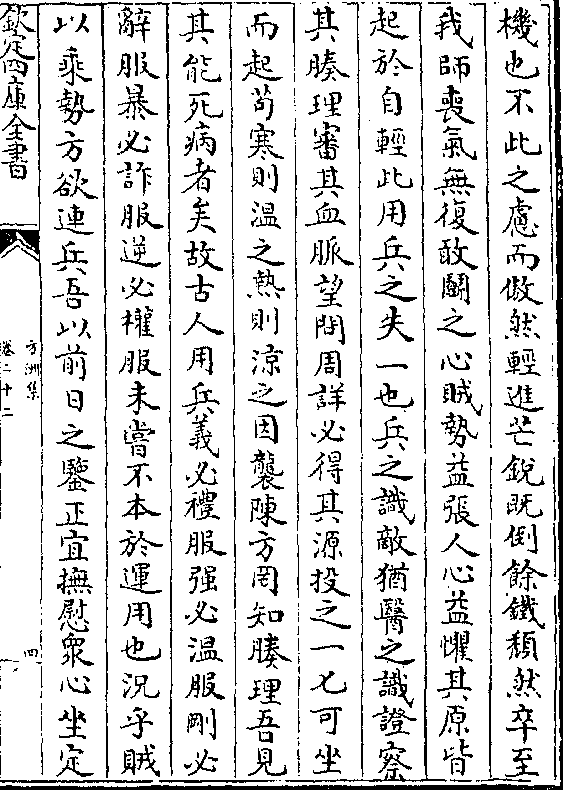 機也不此之慮而傲然輕進芒銳既倒餘鐵頽然卒至
我師喪氣無復敢鬭之心賊勢益張人心益懼其原皆
起於自輕此用兵之失一也兵之識敵猶醫之識證察
其腠理審其血脈望問周詳必得其源投之一匕可坐
而起茍寒則溫之熱則涼之因襲陳方罔知腠理吾見
其能死病者矣故古人用兵義必禮服强必温服剛必
辭服暴必詐服逆必權服未嘗不本於運用也況乎賊
以乘勢方欲連兵吾以前日之鑒正宜撫慰衆心坐定
欽定四庫全書
方洲集
卷二十二
四